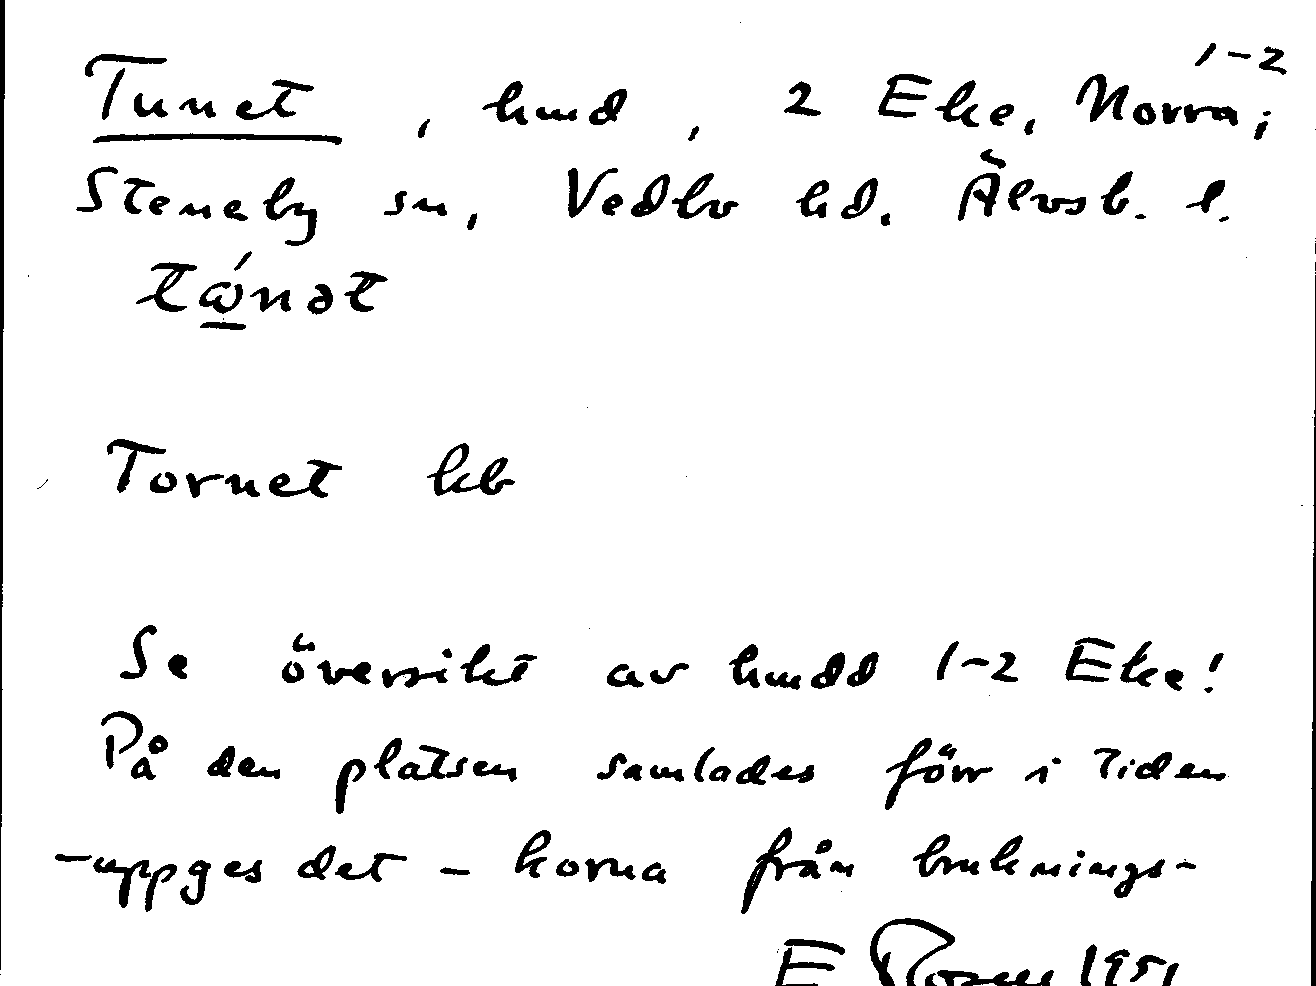 1-2
Tunet, hmd, 2 Eke, Norra,
Steneby sn, Vedbo hd. Älvsb. l.
Tornet kb
Se översikt av hmdd 1-2 Eke!
På den platsen samlades förr i tiden
-uppges det - korna från bruknings-
E 1951